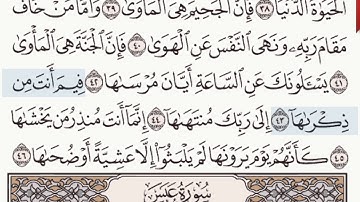 ٱلْحَيَوٰةَ ٱلدُّنْيَا ٣٨ فَإِنَّ ٱلْجَحِيمَ هِىَ ٱلْمَأْوَىٰ ٣٩ وَأَمَّا مَنْ خَافَ
مَقَامَ رَبِّهِۦ وَنَهَى ٱلنَّفْسَ عَنِ ٱلْهَوَىٰ ٤٠ فَإِنَّ ٱلْجَنَّةَ هِىَ ٱلْمَأْوَىٰ
٤١ يَسْـَٔلُونَكَ عَنِ ٱلسَّاعَةِ أَيَّانَ مُرْسَىٰهَا ٤٢ فِيمَ أَنتَ مِن
ذِكْرَىٰهَآ ٤٣ إِلَىٰ رَبِّكَ مُنتَهَىٰهَآ ٤٤ إِنَّمَآ أَنتَ مُنذِرُ مَن يَخْشَىٰهَا
٤٥ كَأَنَّهُمْ يَوْمَ يَرَوْنَهَا لَمْ يَلْبَثُوٓا۟ إِلَّا عَشِيَّةً أَوْ ضُحَىٰهَا ٤٦
سُورَةُ عَبَسَ